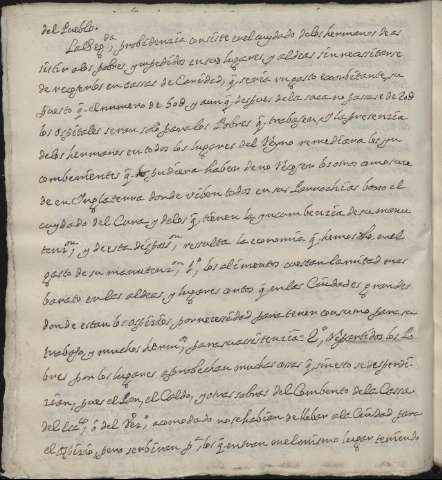 del Pueblo.
La seg.da probidenzia consiste en el cuydado de los hermanos de as
sistir a los pobres y impedidos en sus lugares y aldeas sin necesitarse
de recogerlos en cassas de Caridad, q. seria un gasto exorbitante, su
puesto q. el numero de y aunq. despues de la saca no passase de
los ospitales seran solo para los Pobres q. trabajan, y la presenzia
de los hermanos en todos los lugares del Reyno remediara los yn
combenientes q. pudiera haber de no recogerlos como se
ve en Ynglaterra donde viben todos en sus Parrochias baxo el
cuydado del Cura, y de los q. tienen la yncumbenzia de su manu
tenz.on, y de esta dispos.on resulta la economia q. hemos dho, en el
gasto de su manutenz.on 1.o los alimentos cuestan la mitad mas
barato en las aldeas, y lugares cortos q. en las Ciudades grandes
donde estan los ospizios, por necesidad para tener consumo para su
trabajo, y muchos para su assistenzia: 2.o repartidos los Po
bres por los lugares aprobechan muchas cosas q. sin esto se desperdi
zian, pues el Pan, el Caldo, y otras sobras del Combento de la Cassa
del ó del acomodado no se habian de llebar a la Ciudad para
el ospizio, pero serbiran p.a los q. en el mismo lugar teniendo